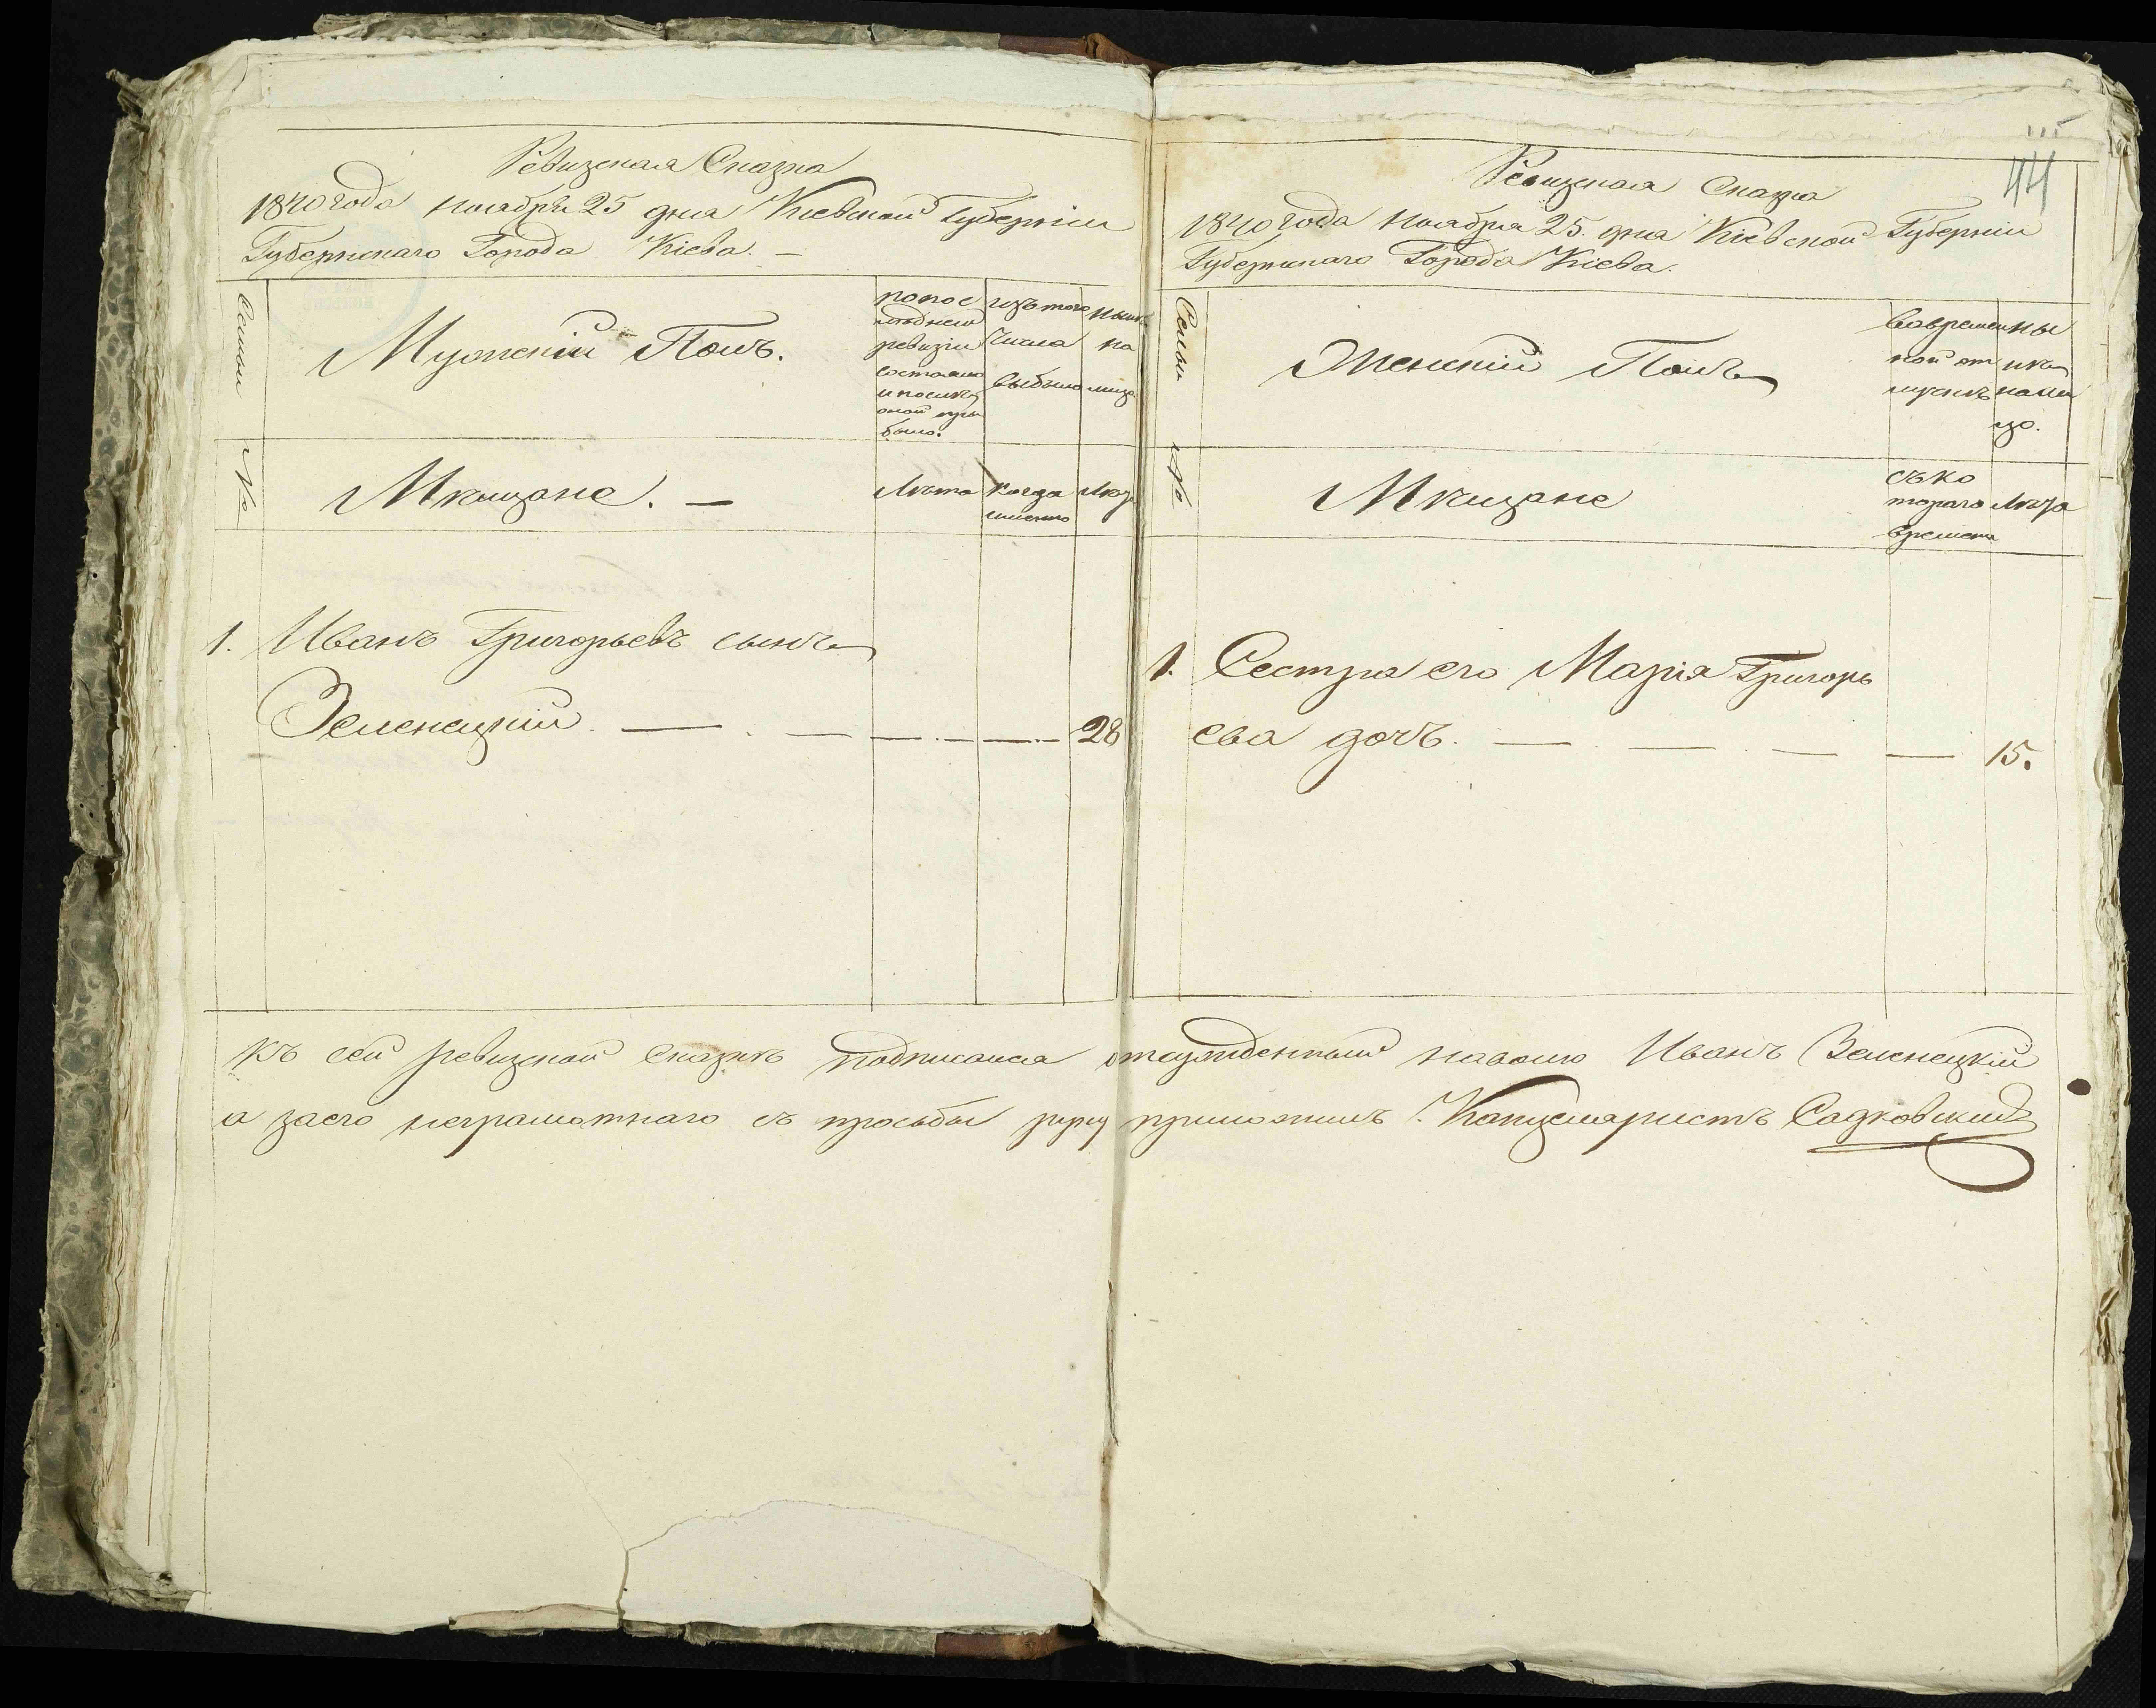 Ревизская Сказка
1840 года ноября 25 дня Киевской Губерніи
Губернскаго Города Кіева. —
Семьи
№
Мужескій Полъ.
по пос
лѣдней
ревизіи
состояло
и послѣ
оной при
было.
изъ того
числа
выбыло
нынѣ
на
лицо
Мѣщане. —
Лѣта
когда
именно
Лѣта
1. Иванъ Григорьевъ сынъ
Зеленецкій. — . — — . — . — . — 28
Къ сей ревизской сказкѣ
а за его неграмотнаго съ прозьбы руку
111
44
Ревизская Сказка
1840 года Ноября 25. дня Кіевской Губерніи
Губернскаго Города Кіева.
Семьи
№
Женскій Полъ
Во времен
ной от
лучкѣ
ны
нѣ
на ли
цо.
Мѣщане
съ ко
тораго
времени
Лѣта
1. Сестра его Марія Григорь
ева дочь. — . — . — — 15.
Иванъ Зеленецкій
приложилъ. Канцеляристъ Садковскій